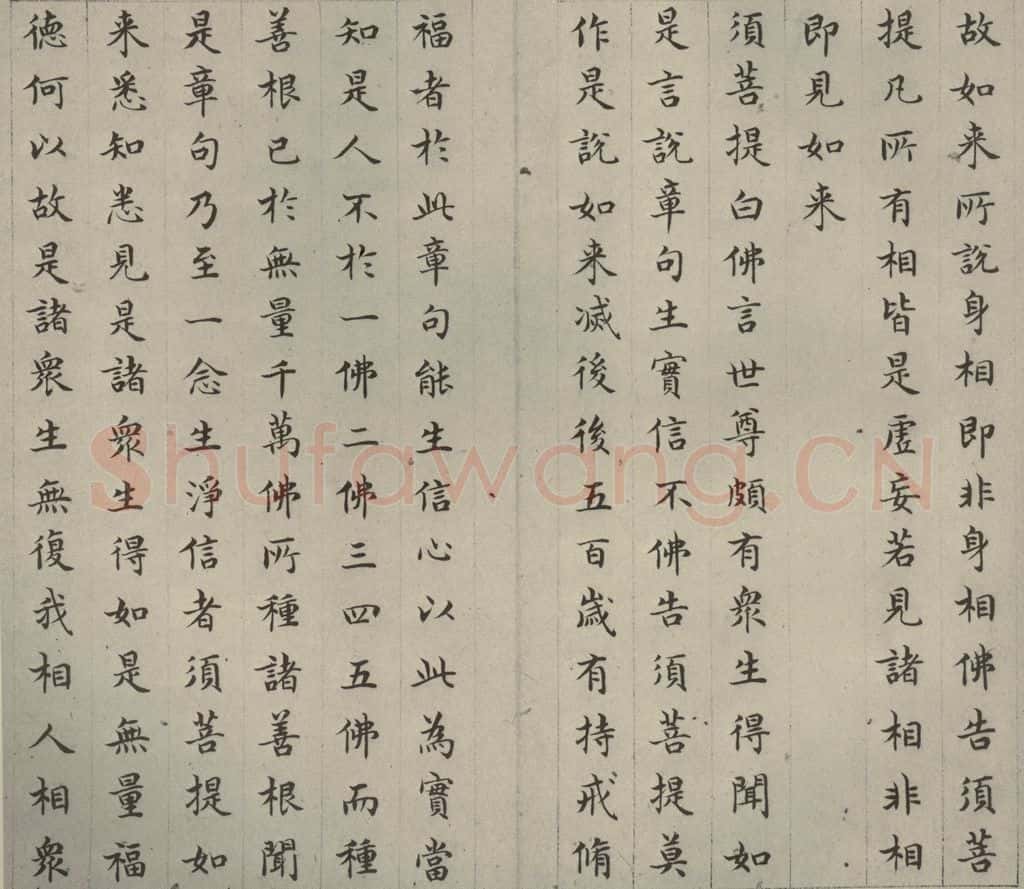 故如来所說身相即非身相佛告須菩
提凡所有相皆是虛妄若見諸相非相
即見如来
須菩提白佛言世尊頗有衆生得聞如
是言說章句生實信不佛告須菩提莫
作是說如来滅後後五百歲有持戒脩
福者於此章句能生信心以此為實當
知是人不於一佛二佛三四五佛而種
善根已於無量千萬佛所種諸善根聞
是章句乃至一念生淨信者須菩提如
来悉知悉見是諸衆生得如是無量福
德何以故是諸衆生無復我相人相衆
Shufawang.CN